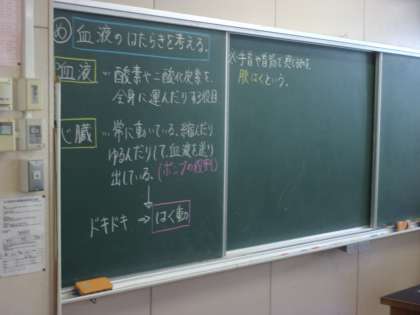 め 血液のはたらきを考える。
血液…酸素や二酸化炭素を、
全身に運んだりする役目
心臓…常に動いている。縮んだり
ゆるんだりして、血液を送り
出している。(ポンプの役割)
ドキドキ ⇒ はく動
※手首や首筋
脈はくという。